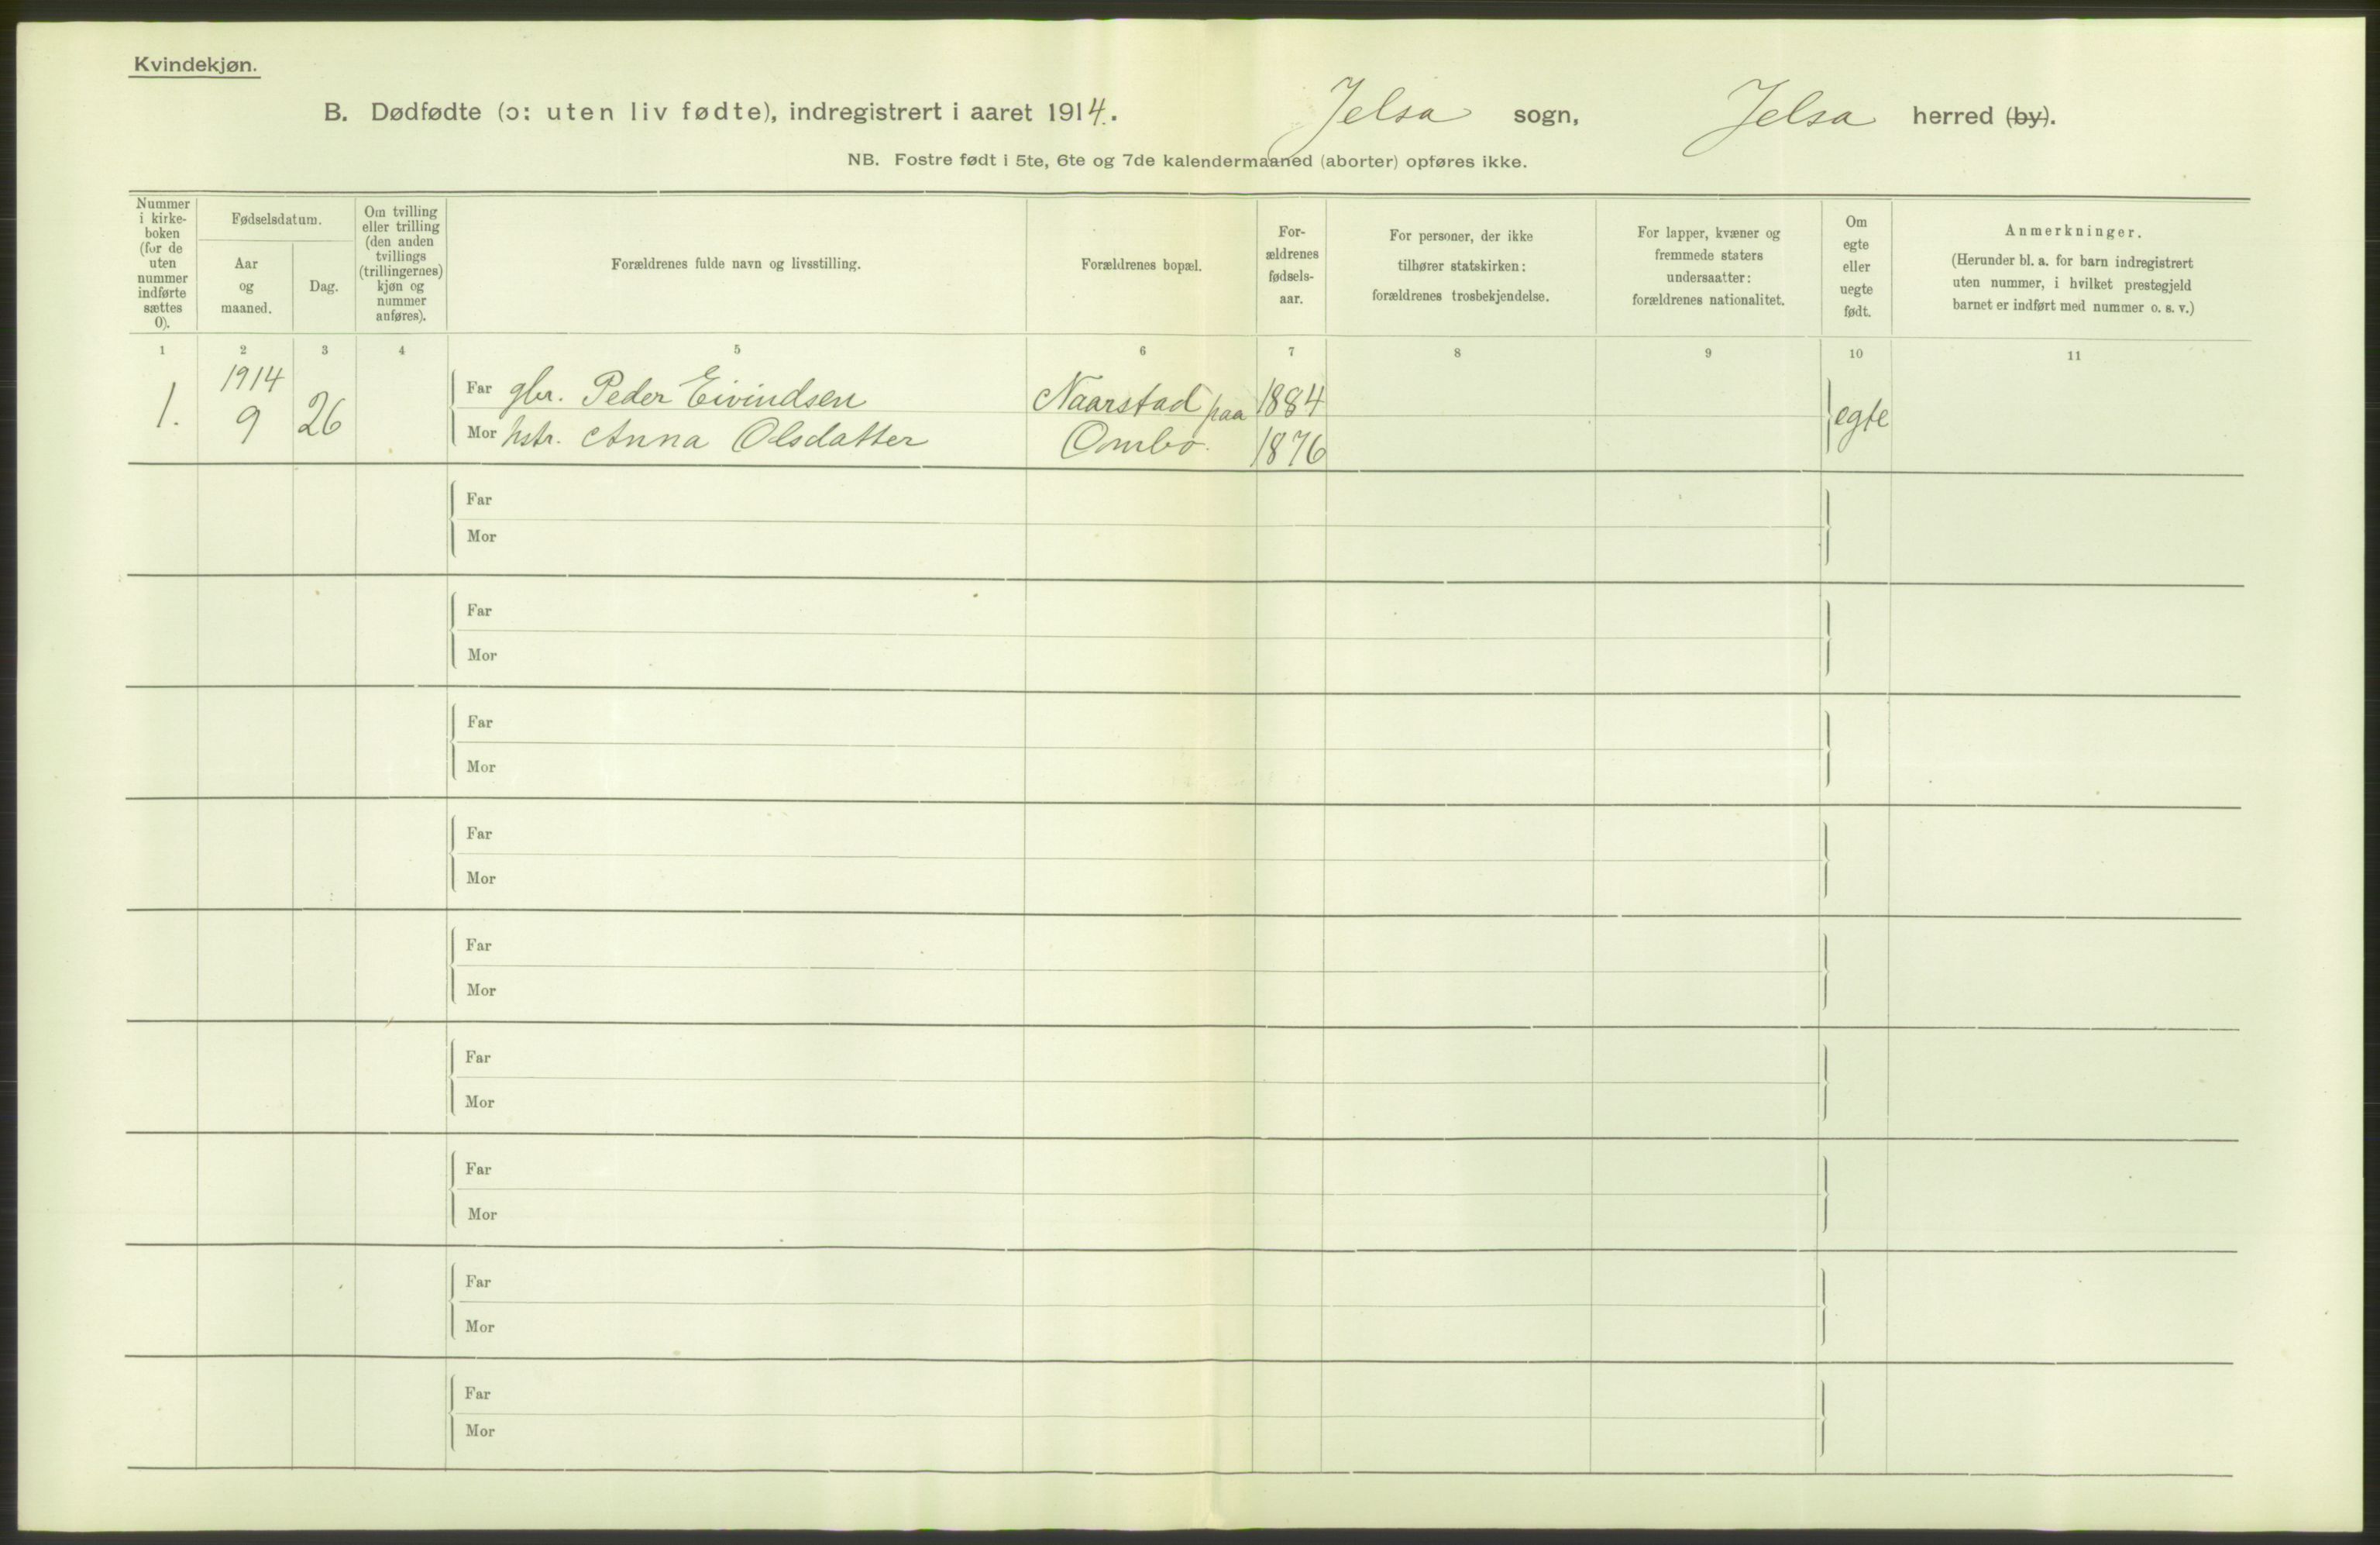 Kvindekjøn.
B. Dødfødte (ɔ: uten liv fødte), indregistrert i aaret 1914. Jelsa sogn, Jelsa herred (by).
NB. Fostre født i 5te, 6te og 7de kalendermaaned (aborter) opføres ikke.
Nummer
i kirke-
boken
(for de
uten
nummer
indførte
sættes
0).
Fødselsdatum.
Aar
og
maaned.
Dag.
Om tvilling
eller trilling
(den anden
tvillings
(trillingernes)
kjøn og
nummer
anføres).
Forældrenes fulde navn og livsstilling.
Forældrenes bopæl.
For-
ældrenes
fødsels-
aar.
For personer, der ikke
tilhører statskirken:
forældrenes trosbekjendelse.
For lapper, kvæner og
fremmede staters
undersaatter:
forældrenes nationalitet.
Om
egte
eller
uegte
født.
Anmerkninger.
(Herunder bl. a. for barn indregistrert
uten nummer, i hvilket prestegjeld
barnet er indført med nummer o. s. v.)
1 2 3 4 5 6 7 8 9 10 11
1914
1. 9 26
Far gbr. Peder Eivindsen Naarstad paa 1884
Mor hstr. Anna Olsdatter Ombo. 1876
egte
Far
Mor
Far
Mor
Far
Mor
Far
Mor
Far
Mor
Far
Mor
Far
Mor
Far
Mor
Far
Mor